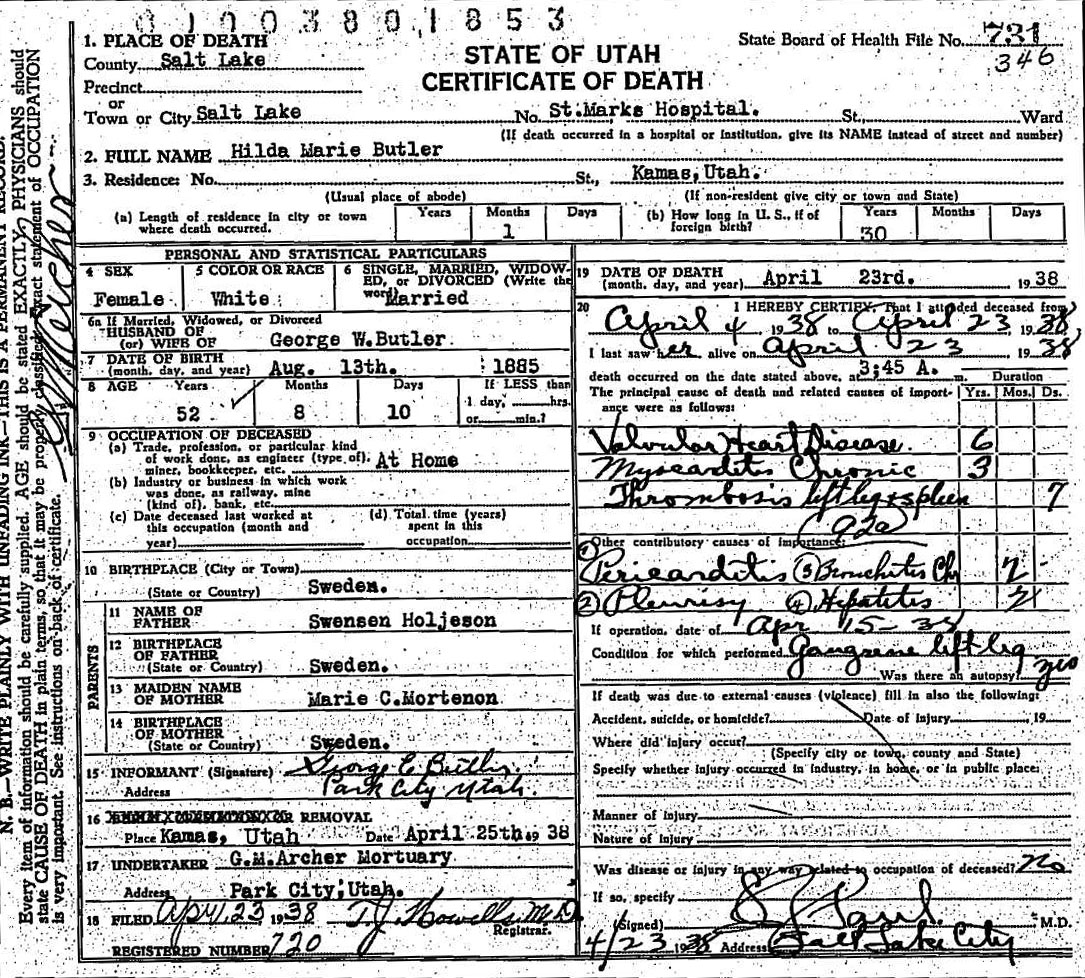 0100380,1853
1. PLACE OF DEATH
County Salt Lake
Precinct
or
Town or City Salt Lake
STATE OF UTAH
CERTIFICATE OF DEATH
State Board of Health File No. 731
346
No. St.Marks Hospital. St., Ward
(If death occurred in a hospital or institution, give its NAME instead of street and number)
2. FULL NAME Hilda Marie Butler
3. Residence: No. St., Kamas,Utah.
(Usual place of abode) (If non-resident give city or town and State)
(a) Length of residence in city or town where death occurred. Years Months 1 Days
(b) How long in U. S., if of foreign birth? Years 30 Months Days
PERSONAL AND STATISTICAL PARTICULARS
4 SEX Female
5 COLOR OR RACE White
6 SINGLE, MARRIED, WIDOWED, or DIVORCED (Write the word) Married
6a If Married, Widowed, or Divorced
HUSBAND OF
(or) WIFE OF George W.Butler
7 DATE OF BIRTH
(month, day, and year) Aug. 13th. 1885
8 AGE Years 52 Months 8 Days 10 If LESS than 1 day, hrs. or min.?
9 OCCUPATION OF DECEASED
(a) Trade, profession, or particular kind
of work done, as engineer (type of), At Home
miner, bookkeeper, etc.
(b) Industry or business in which work
was done, as railway, mine
(kind of), bank, etc.
(c) Date deceased last worked at
this occupation (month and
year)
(d) Total time (years)
spent in this
occupation
10 BIRTHPLACE (City or Town)
(State or Country) Sweden.
PARENTS
11 NAME OF
FATHER Swensen Holjeson
12 BIRTHPLACE
OF FATHER
(State or Country) Sweden.
13 MAIDEN NAME
OF MOTHER Marie C.Mortenon
14 BIRTHPLACE
OF MOTHER
(State or Country) Sweden.
15 INFORMANT (Signature) George E Butler
Address Park City Utah.
16 OR REMOVAL
Place Kamas, Utah Date April 25th. 1938
17 UNDERTAKER G.M.Archer Mortuary
Address Park City, Utah.
18 FILED Apr, 23 1938 T.J. Howells M.D.
Registrar.
REGISTERED NUMBER 720
19 DATE OF DEATH
(month, day, and year) April 23rd. 1938
20 I HEREBY CERTIFY, That I attended deceased from
April 4 1938 to April 23, 1938,
I last saw her alive on April 23 1938
death occurred on the date stated above, at 3;45 A. m. Duration
The principal cause of death and related causes of importance were as follows: Yrs. Mos. Ds.
Valvular Heart Disease 6
Myocarditis Chronic 3
Thrombosis left leg & spleen 7
(92a)
Other contributory causes of importance:
(1) Pericarditis (3) Bronchitis Chr
(2) Pleurisy (4) Hepatitis
If operation, date of Apr 15-38
Condition for which performed Gangrene left leg
Was there an autopsy? yes
If death was due to external causes (violence) fill in also the following:
Accident, suicide, or homicide? Date of injury 19
Where did injury occur?
(Specify city or town, county and State)
Specify whether injury occurred in industry, in home, or in public place:
Manner of Injury
Nature of Injury
Was disease or injury in any way related to occupation of deceased? no
If so, specify
(Signed) Paul M.D.
4/23 1938 Address Salt Lake City
N. B.—WRITE PLAINLY WITH UNFADING INK—THIS IS A PERMANENT RECORD.
Every item of information should be carefully supplied. AGE should be stated EXACTLY. PHYSICIANS should
state CAUSE OF DEATH in plain terms, so that it may be properly classified. Exact statement of OCCUPATION
is very important. See instructions on back of certificate.